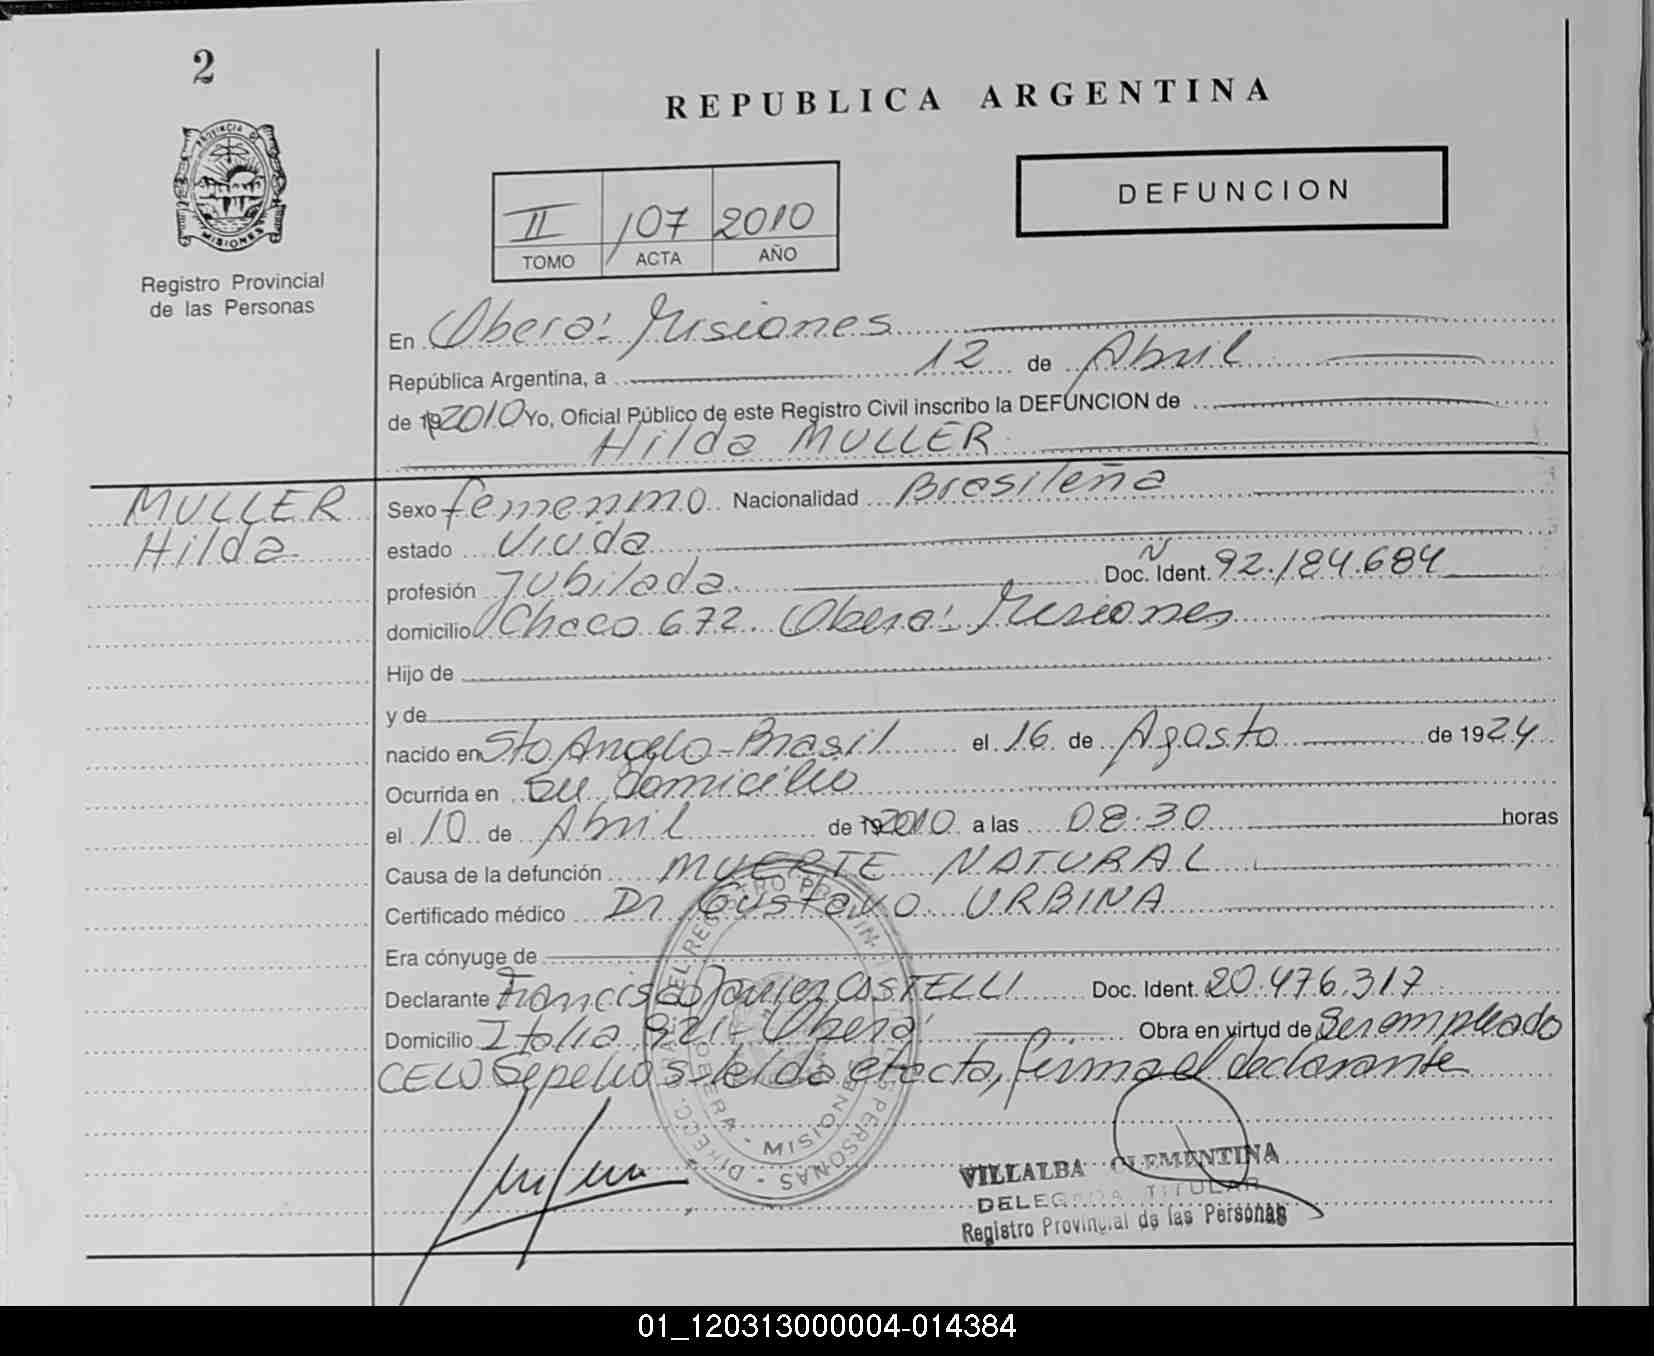 2
REPUBLICA ARGENTINA
PROVINCIA DE
MISIONES
Registro Provincial
de las Personas
II 107 2010
TOMO ACTA AÑO
DEFUNCION
En Oberá: Misiones
República Argentina, a 12 de Abril
de 19 2010 Yo, Oficial Público de este Registro Civil inscribo la DEFUNCION de
Hilda MULLER
MULLER
Hilda
Sexo femenino Nacionalidad Brasileña
estado Viuda
profesión Jubilada Doc. Ident. Nº 92.184.684
domicilio Chaco 672 Oberá: Misiones
Hijo de
y de
nacido en Sto Angelo-Brasil el 16 de Agosto de 1924
Ocurrida en Su domicilio
el 10 de Abril de 19 2010 a las 08:30 horas
Causa de la defunción MUERTE NATURAL
Certificado médico Dr Gustavo URBINA
Era cónyuge de
Declarante Francisco Javier CASTELLI Doc. Ident. 20.476.317
Domicilio Italia 921- Oberá Obra en virtud de Ser empleado
CELO Sepelios leída el acta, firma el declarante
OBERA - MISIONES
VILLALBA CLEMENTINA
DELEGADA TITULAR
Registro Provincial de las Personas
01_120313000004-014384